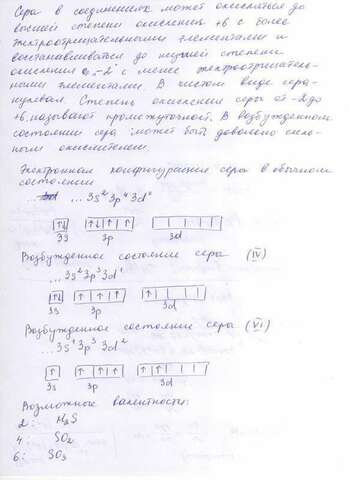 Сера в соединениях может окисляться до
высшей степени окисления +6 с более
электроотрицательными элементами и
восстанавливаться до низшей степени
окисления -2 с менее электроотрицатель-
ными элементами. В чистом виде сера-
нулевая. Степень окисления серы от -2 до
+6 называют промежуточной. В возбужденном
состоянии сера может быть довольно силь-
ным окислителем.
Электронная конфигурация серы в обычном
состоянии
... ...3s² 3p⁴ 3d⁰
↑↓ ↑↓ ↑ ↑
3s 3p 3d
Возбужденное состояние серы (IV)
...3s² 3p³ 3d¹
↑↓ ↑ ↑ ↑ ↑
3s 3p 3d
Возбужденное состояние серы (VI)
...3s¹ 3p³ 3d²
↑ ↑ ↑ ↑ ↑ ↑
3s 3p 3d
Возможные валентности:
2: H₂S
4: SO₂
6: SO₃